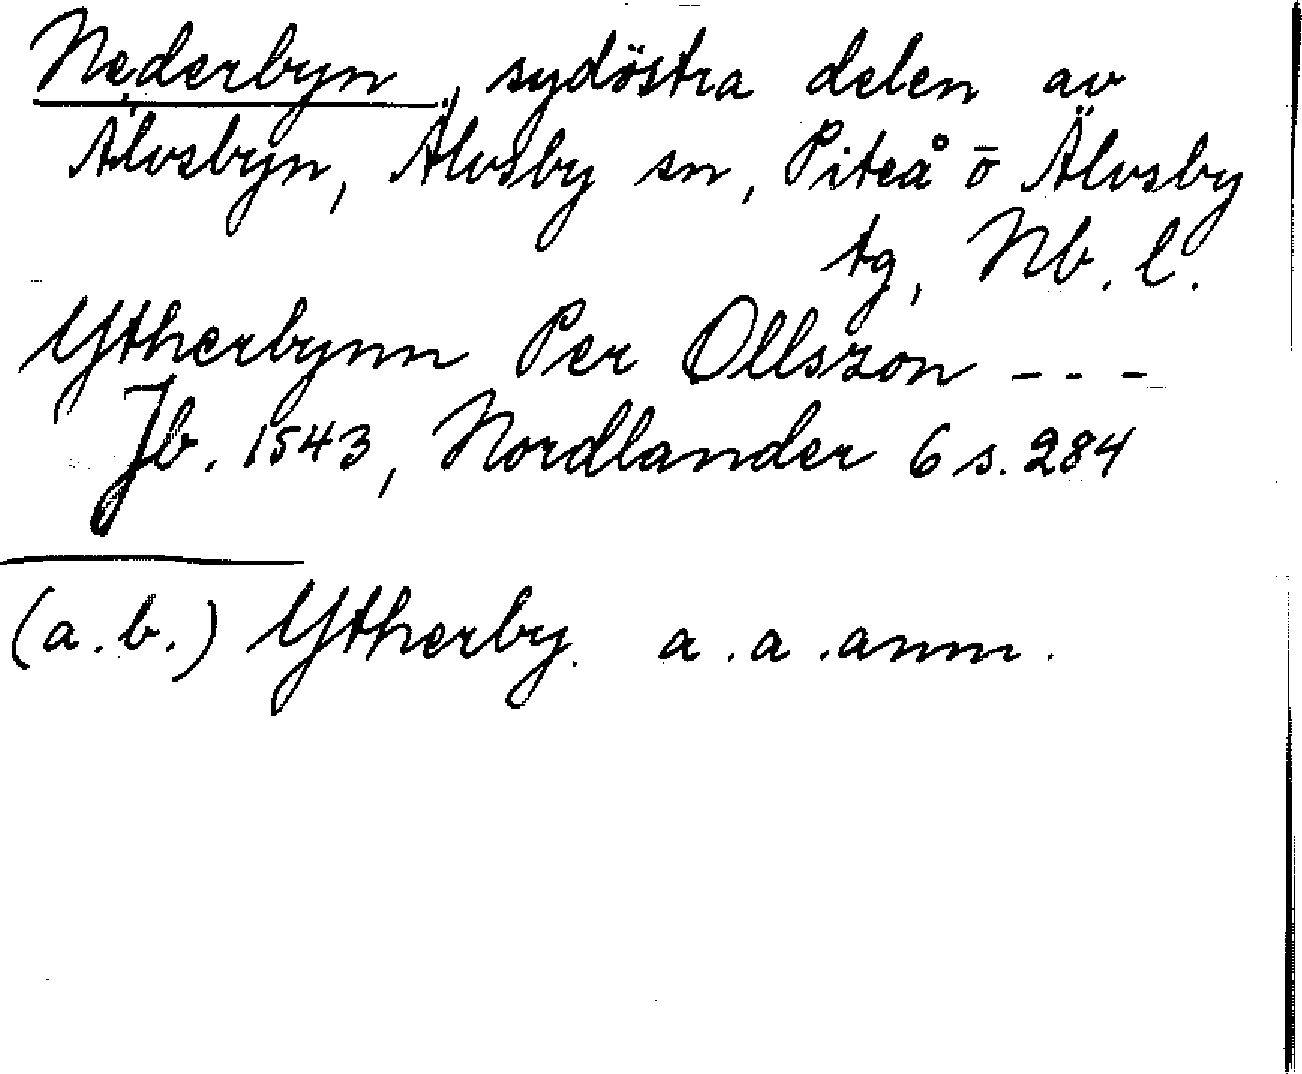 Nederbyn, sydöstra delen av
Älvsbyn, Älvsby sn, Piteå o Älvsby
tg, Nb. l.
Ytherbynn Per Ollszon - - -
Jb. 1543, Nordlander 6 s. 284
(a. b.) Ytherby. a. a. anm.